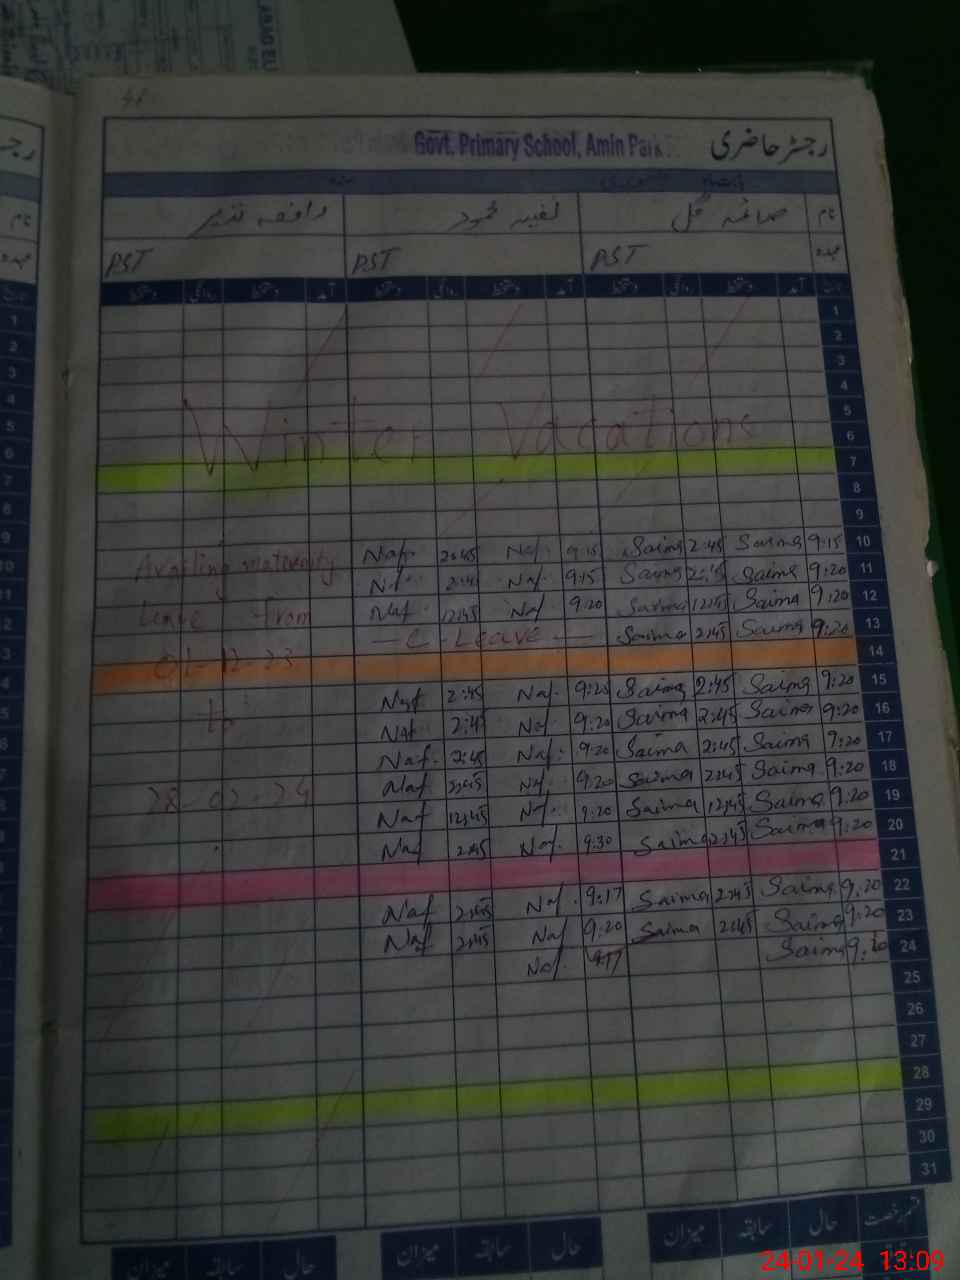 Govt. Primary School, Amin Park
رجسٹر حاضری
نام
صائمہ گل
عہدہ
PST PST PST
آمد دستخط روانگی دستخط آمد دستخط روانگی دستخط آمد دستخط روانگی دستخط
1
2
3
4
5
Winter Vacations
6
7
8
9
Availing maternity Naf 2:45 Naf 9:15 Saima 2:45 Saima 9:15 10
Naf 2:45 Naf 9:15 Saima 2:45 Saima 9:20 11
Leave From Naf 12:45 Naf 9:20 Saima 12:45 Saima 9:20 12
C-Leave Saima 2:45 Saima 9:20 13
01-12-23 14
Naf 2:45 Naf 9:20 Saima 2:45 Saima 9:20 15
to Naf 2:45 Naf 9:20 Saima 2:45 Saima 9:20 16
Naf 2:45 Naf 9:20 Saima 2:45 Saima 9:20 17
28-02-24 Naf 2:45 Naf 9:20 Saima 2:45 Saima 9:20 18
Naf 12:45 Naf 9:20 Saima 12:45 Saima 9:20 19
Naf 2:45 Naf 9:30 Saima 2:45 Saima 9:20 20
21
Naf 2:45 Naf 9:17 Saima 2:45 Saima 9:20 22
Naf 2:45 Naf 9:20 Saima 2:45 Saima 9:20 23
Naf 9:17 Saima 9:20 24
25
26
27
28
29
30
31
قسم رخصت حال سابقہ میزان حال سابقہ میزان حال سابقہ میزان
24-01-24 13:09